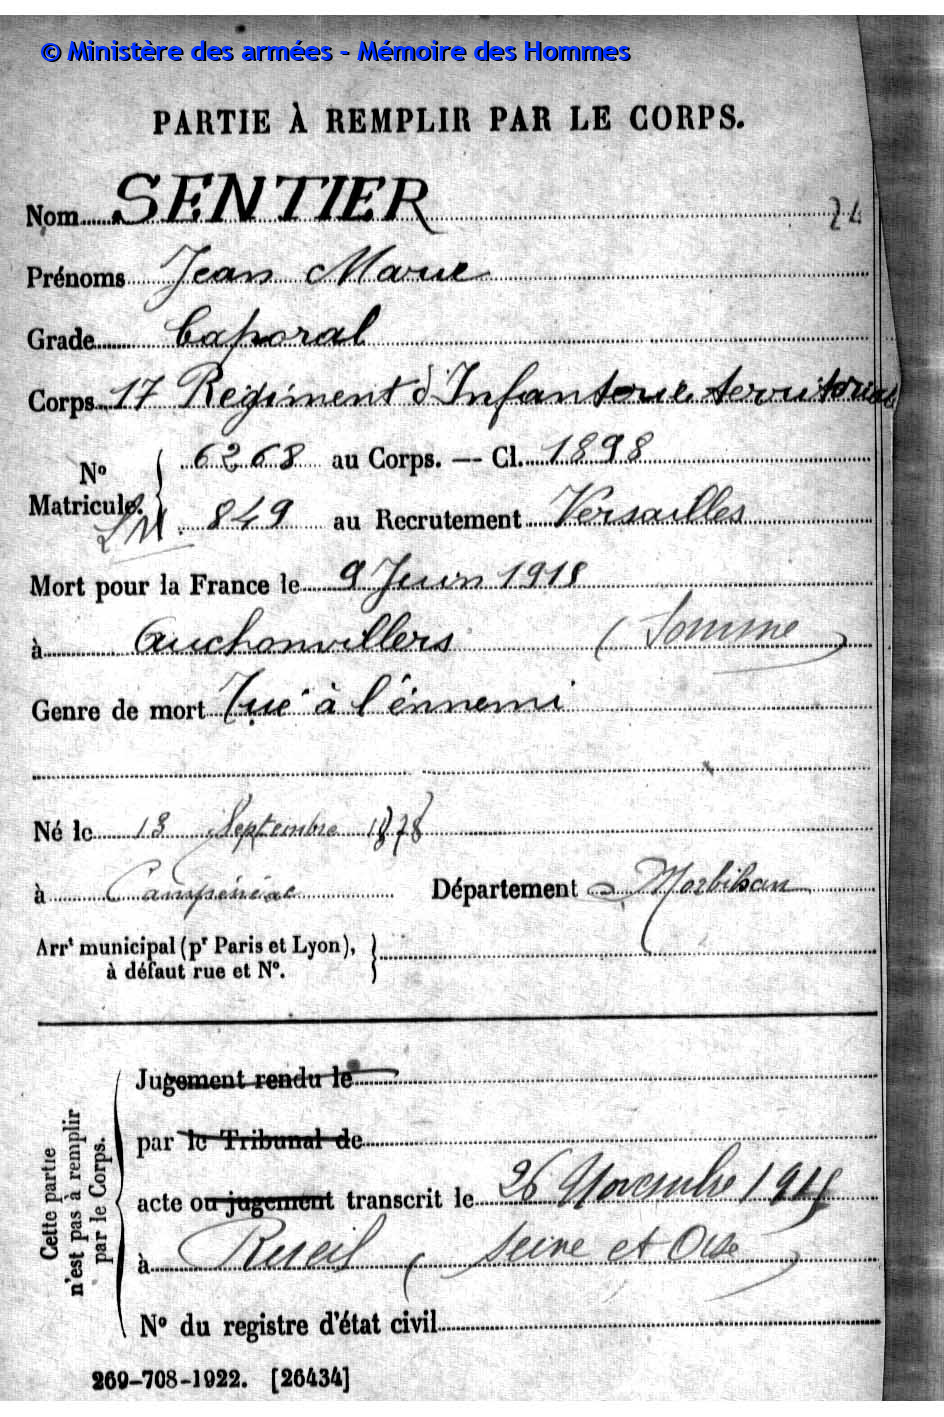 © Ministère des armées - Mémoire des Hommes
PARTIE À REMPLIR PAR LE CORPS.
Nom SENTIER
Prénoms Jean Marie
Grade Caporal
Corps 17 Régiment d'Infanterie territoriale
N° Matricule. 6268 au Corps. — Cl. 1898
849 au Recrutement Versailles
Mort pour la France le 9 Juin 1918
à Auchonvillers (Somme)
Genre de mort Tué à l'énnemi
Né le 13 Septembre 1878
à Campénéac Département Morbihan
Arrt municipal (pr Paris et Lyon),
à défaut rue et N°.
Cette partie
n'est pas à remplir
par le Corps.
Jugement rendu le
par le Tribunal de
acte ou jugement transcrit le 26 Novembre 1918
à Rueil (Seine et Oise)
N° du registre d'état civil
269-708-1922. [26434]